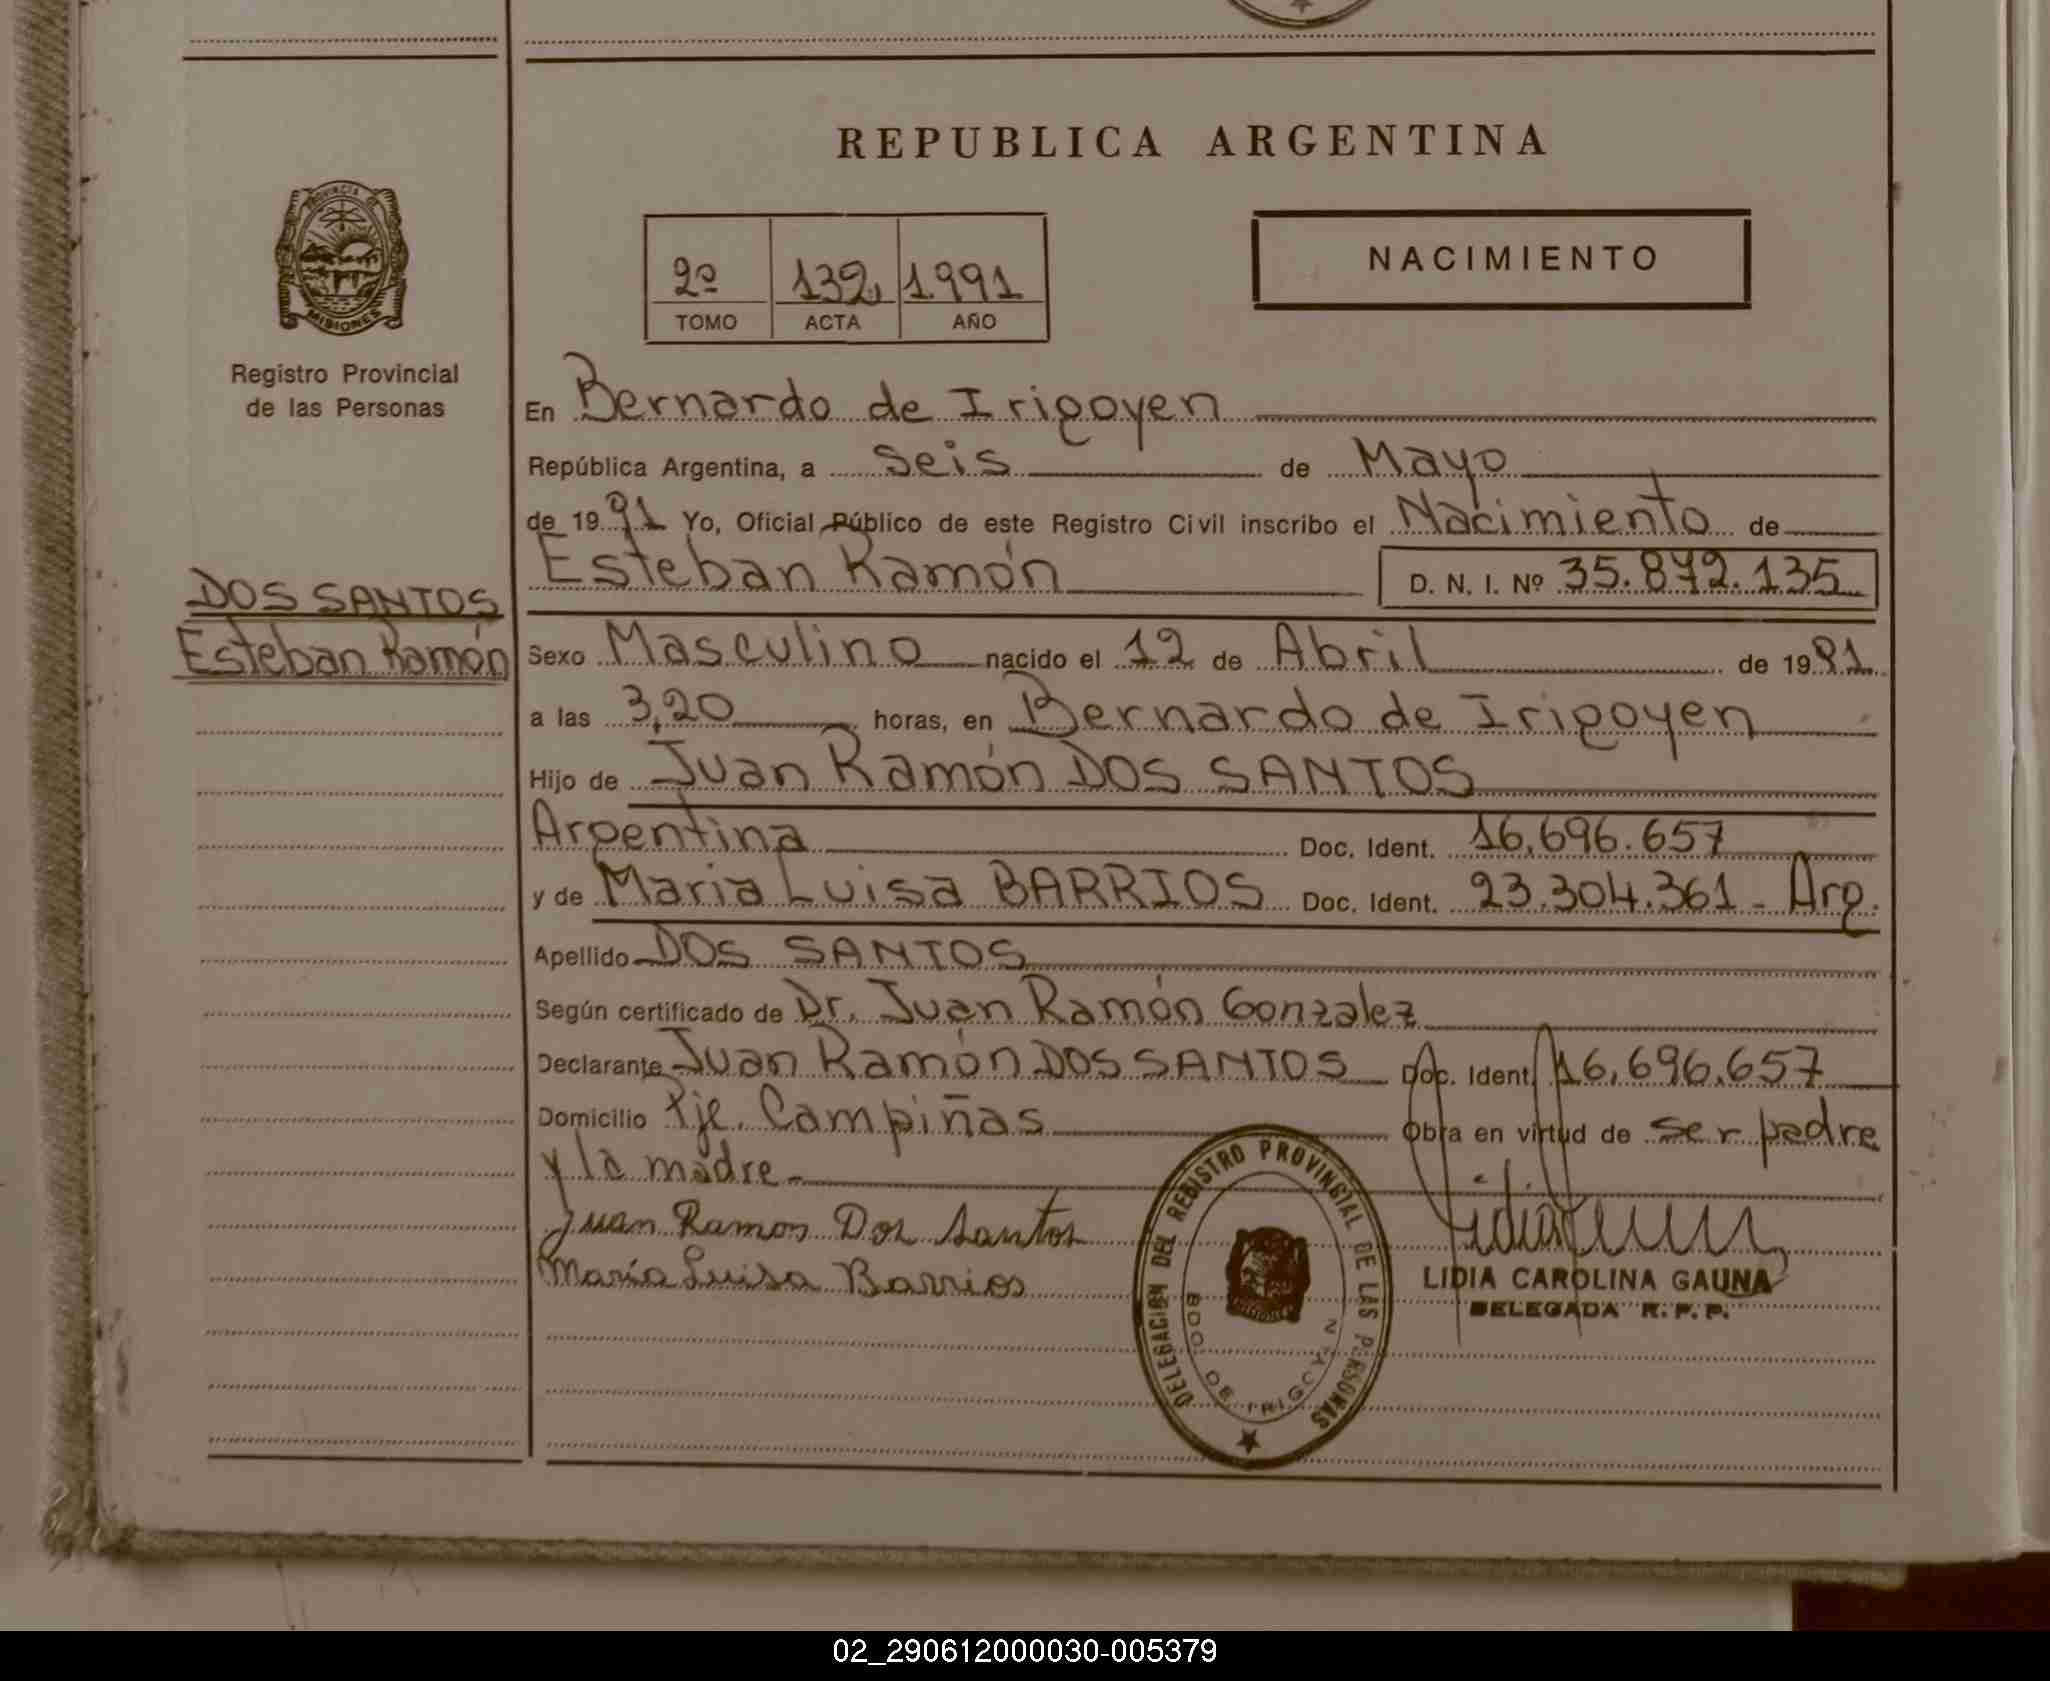 REPUBLICA ARGENTINA
PROVINCIA DE
MISIONES
Registro Provincial
de las Personas
2º 132 1991
TOMO ACTA AÑO
NACIMIENTO
En Bernardo de Irigoyen
República Argentina, a seis de Mayo
de 1991 Yo, Oficial Público de este Registro Civil inscribo el Nacimiento de
Esteban Ramón D. N. I. Nº 35.872.135
DOS SANTOS
Esteban Ramón
Sexo Masculino nacido el 12 de Abril de 1991
a las 3,20 horas, en Bernardo de Irigoyen
Hijo de Juan Ramón DOS SANTOS
Argentina Doc. Ident. 16.696.657
y de Maria Luisa BARRIOS Doc. Ident. 23.304.361 - Arg.
Apellido DOS SANTOS
Según certificado de Dr. Juan Ramón Gonzalez
Declarante Juan Ramón DOS SANTOS Doc. Ident. 16.696.657
Domicilio Pje. Campiñas Obra en virtud de ser padre
y la madre -
Juan Ramon Dos Santos
María Luisa Barrios
DELEGACION DEL REGISTRO PROVINCIAL DE LAS PERSONAS
BDO. DE IRIGOYEN
LIDIA CAROLINA GAUNA
DELEGADA R. P. P.
02_290612000030-005379